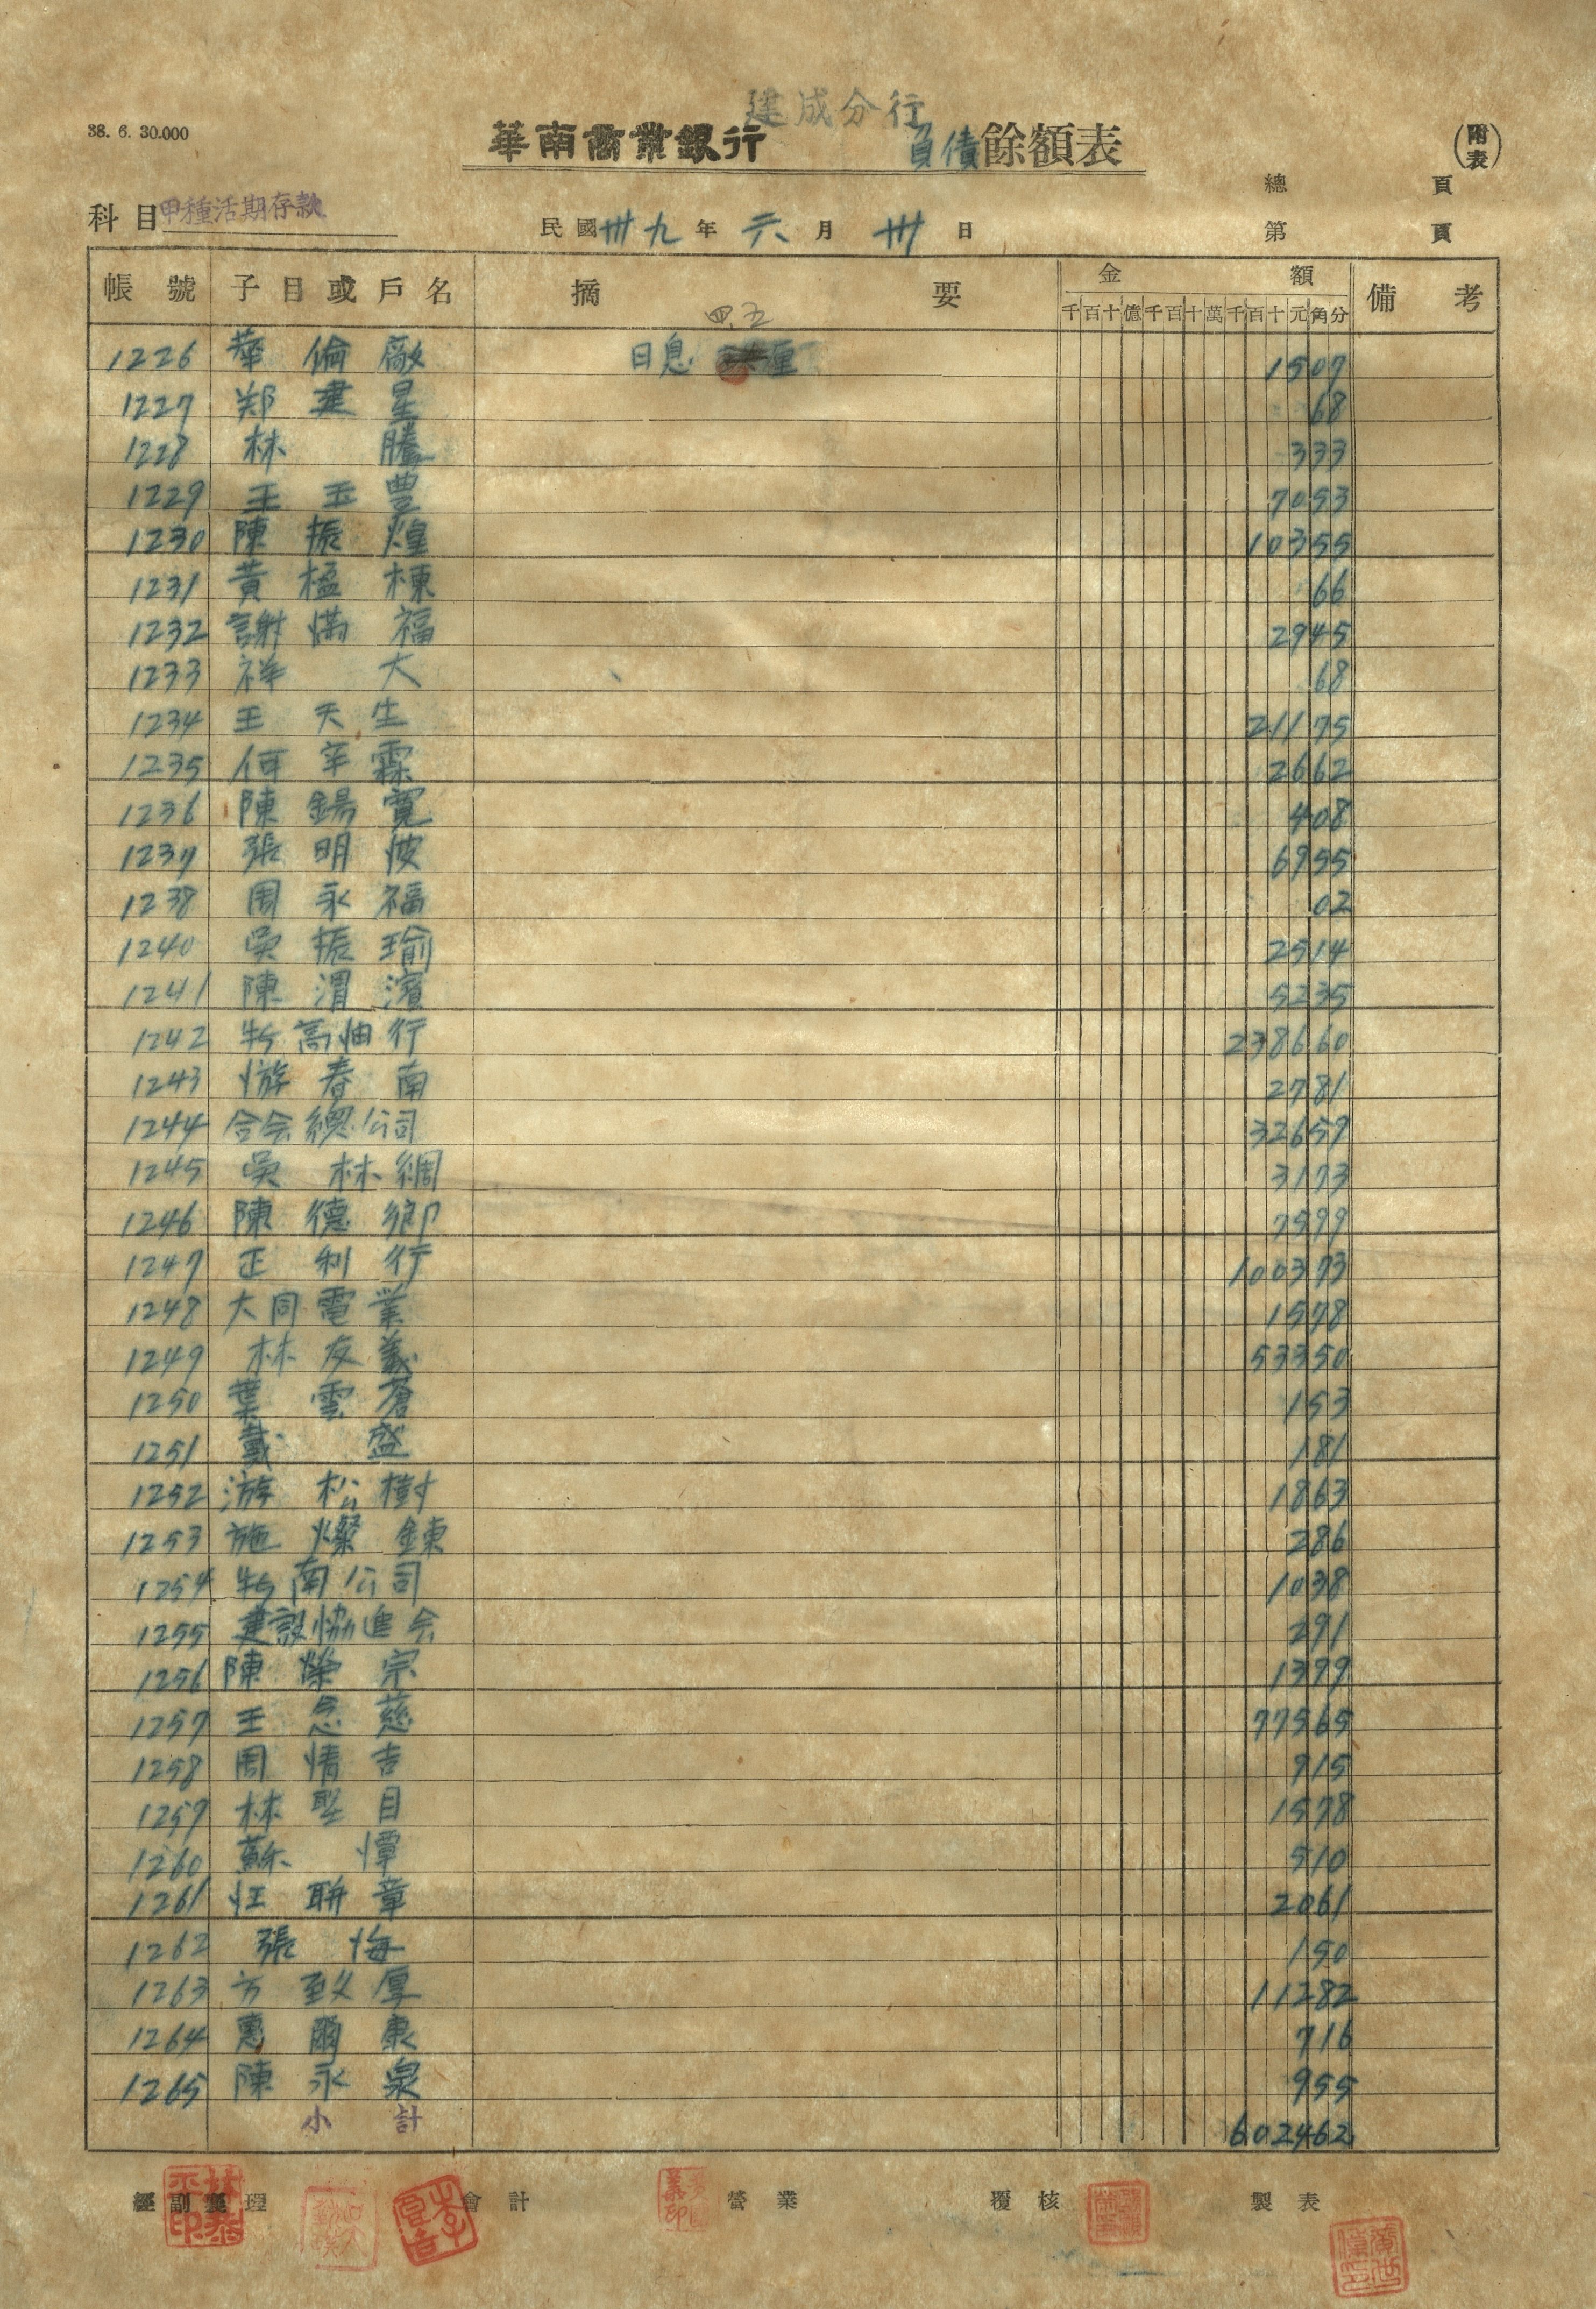 建成分行
38. 6. 30.000
華南商業銀行 負債餘額表
(附表)
總 頁
科目 甲種活期存款
民國卅九年六月卅日
第 頁
帳號 子目或戶名 摘要 金額 備考
千百十億千百十萬千百十元角分
四.五
1226 華倫廠 日息 厘 1507
1227 郑建星 68
1228 林騰 333
1229 王玉豊 7053
1230 陳振煌 10355
1231 黃楹棟 66
1232 謝滿福 2945
1233 祥大 68
1234 王天生 21175
1235 何辛霖 2662
1236 陳錫寬 408
1237 張明 6955
1238 周永福 02
1240 吳振瑜 2514
1241 陳渭濱 5235
1242 高油行 238660
1243 游春南 2781
1244 合会總公司 32659
1245 吳林綢 3173
1246 陳德鄉 7599
1247 正利行 100373
1248 大同電業 1578
1249 林友義 53350
1250 葉雲蒼 153
1251 戴盛 181
1252 游松樹 1863
1253 施燦鍊 286
1254 南公司 1038
1255 建設協進会 291
1256 陳榮宗 1399
1257 王念慈 77565
1258 周情吉 915
1259 林堅目 1578
1260 蘇憚 510
1261 汪聨章 2061
1262 張海 150
1263 方致厚 11282
1264 惠爾康 716
1265 陳永泉 955
小計 602462
經副襄理 會計 營業 覆核 製表